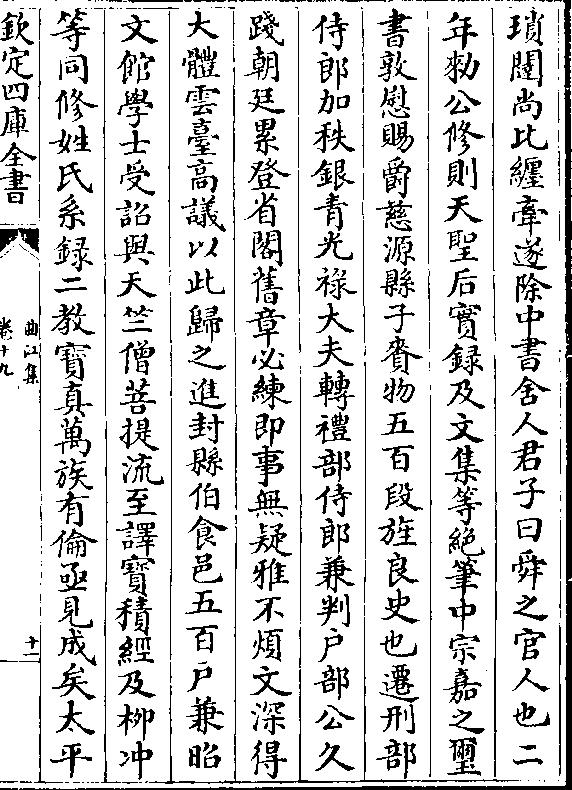 瑣闥尚比纏牽遂除中書舍人君子曰舜之官人也二
年勑公修則天聖后實録及文集等絶筆中宗嘉之璽
書敦慰賜爵慈源縣子賚物五百段旌良史也遷刑部
侍郎加秩銀青光祿大夫轉禮部侍郎兼判户部公久
踐朝廷累登省閣舊章必練即事無疑雅不煩文深得
大體雲臺高議以此歸之進封縣伯食邑五百户兼昭
文館學士受詔與天竺僧菩提流至譯寶積經及柳冲
等同修姓氏系録二教寶真萬族有倫亟見成矣太平
欽定四庫全書
曲江集
卷十九
十一